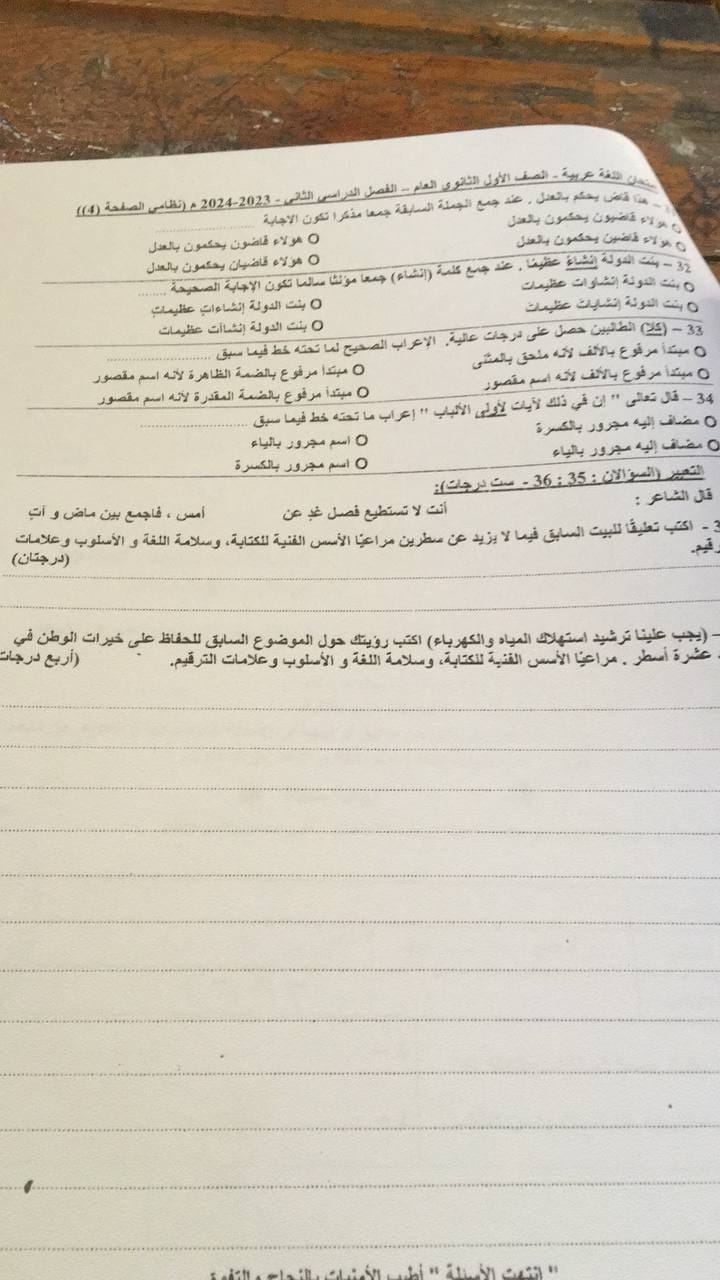 امتحان اللغة عربية - الصف الأول الثانوي العام - الفصل الدراسي الثاني - 2023-2024 م (نظامي الصفحة (4))
هذا قاضٍ يحكم بالعدل . عند جمع الجملة السابقة جمعا مذكرا تكون الإجابة ....................
هؤلاء قاضيون يحكمون بالعدل
هؤلاء قاضون يحكمون بالعدل
هؤلاء قاضين يحكمون بالعدل
هؤلاء قاضيان يحكمون بالعدل
32 – بنت الدولة إنشاءً عظيمًا . عند جمع كلمة (إنشاء) جمعا مؤنثا سالما تكون الإجابة الصحيحة ......
بنت الدولة إنشاوات عظيمات
بنت الدولة إنشاءاتٍ عظيماتٍ
بنت الدولة إنشايات عظيمات
بنت الدولة إنشاآت عظيمات
33 – (كلا) الطالبين حصل على درجات عالية. الإعراب الصحيح لما تحته خط فيما سبق ....................
مبتدأ مرفوع بالألف لأنه ملحق بالمثنى
مبتدأ مرفوع بالضمة الظاهرة لأنه اسم مقصور
مبتدأ مرفوع بالألف لأنه اسم مقصور
مبتدأ مرفوع بالضمة المقدرة لأنه اسم مقصور
34 – قال تعالى " إن في ذلك لآيات لأولي الألباب " إعراب ما تحته خط فيما سبق ....................
مضاف إليه مجرور بالكسرة
اسم مجرور بالياء
مضاف إليه مجرور بالياء
اسم مجرور بالكسرة
التعبير (السؤالان : 35 : 36 - ست درجات):
قال الشاعر :
أنت لا تستطيع فصل غدٍ عن أمس ، فاجمع بين ماضٍ و آتٍ
- اكتب تعليقًا للبيت السابق فيما لا يزيد عن سطرين مراعيًا الأسس الفنية للكتابة، وسلامة اللغة و الأسلوب وعلامات
(درجتان)
– (يجب علينا ترشيد استهلاك المياه والكهرباء) اكتب رؤيتك حول الموضوع السابق للحفاظ على خيرات الوطن في
عشرة أسطر . مراعيًا الأسس الفنية للكتابة، وسلامة اللغة و الأسلوب وعلامات الترقيم. (أربع درجات)
" انتهت الأسئلة " أطيب الأمنيات بالنجاح و التفوق